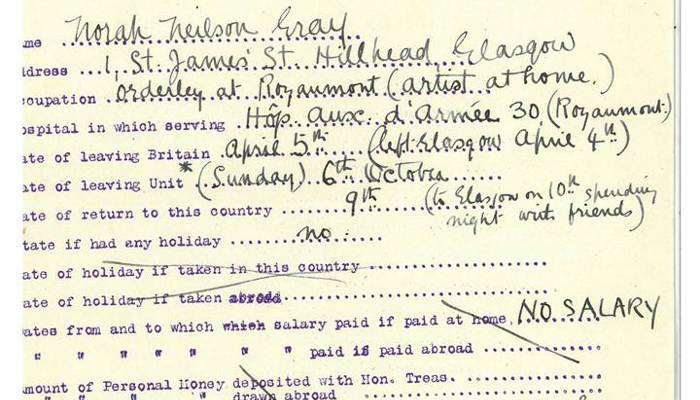 ame Norah Neilson Gray
ddress ...1, St. James' St. Hillhead Glasgow
ccupation Orderley at Royaumont (artist at home.)
ospital in which serving Hôp. Aux. d'Armée 30 (Royaumont.)
ate of leaving Britain April 5th (left Glasgow April 4th)
ate of leaving Unit * (Sunday) 6th October
ate of return to this country 9th (to Glasgow on 10th spending night with friends)
tate if had any holiday no.
ate of holiday if taken in this country
ate of holiday if taken abroad
ates from and to which which salary paid if paid at home. NO SALARY
" " " " " " paid if paid abroad
mount of Personal Money deposited with Hon. Treas.
" " " " drawn abroad